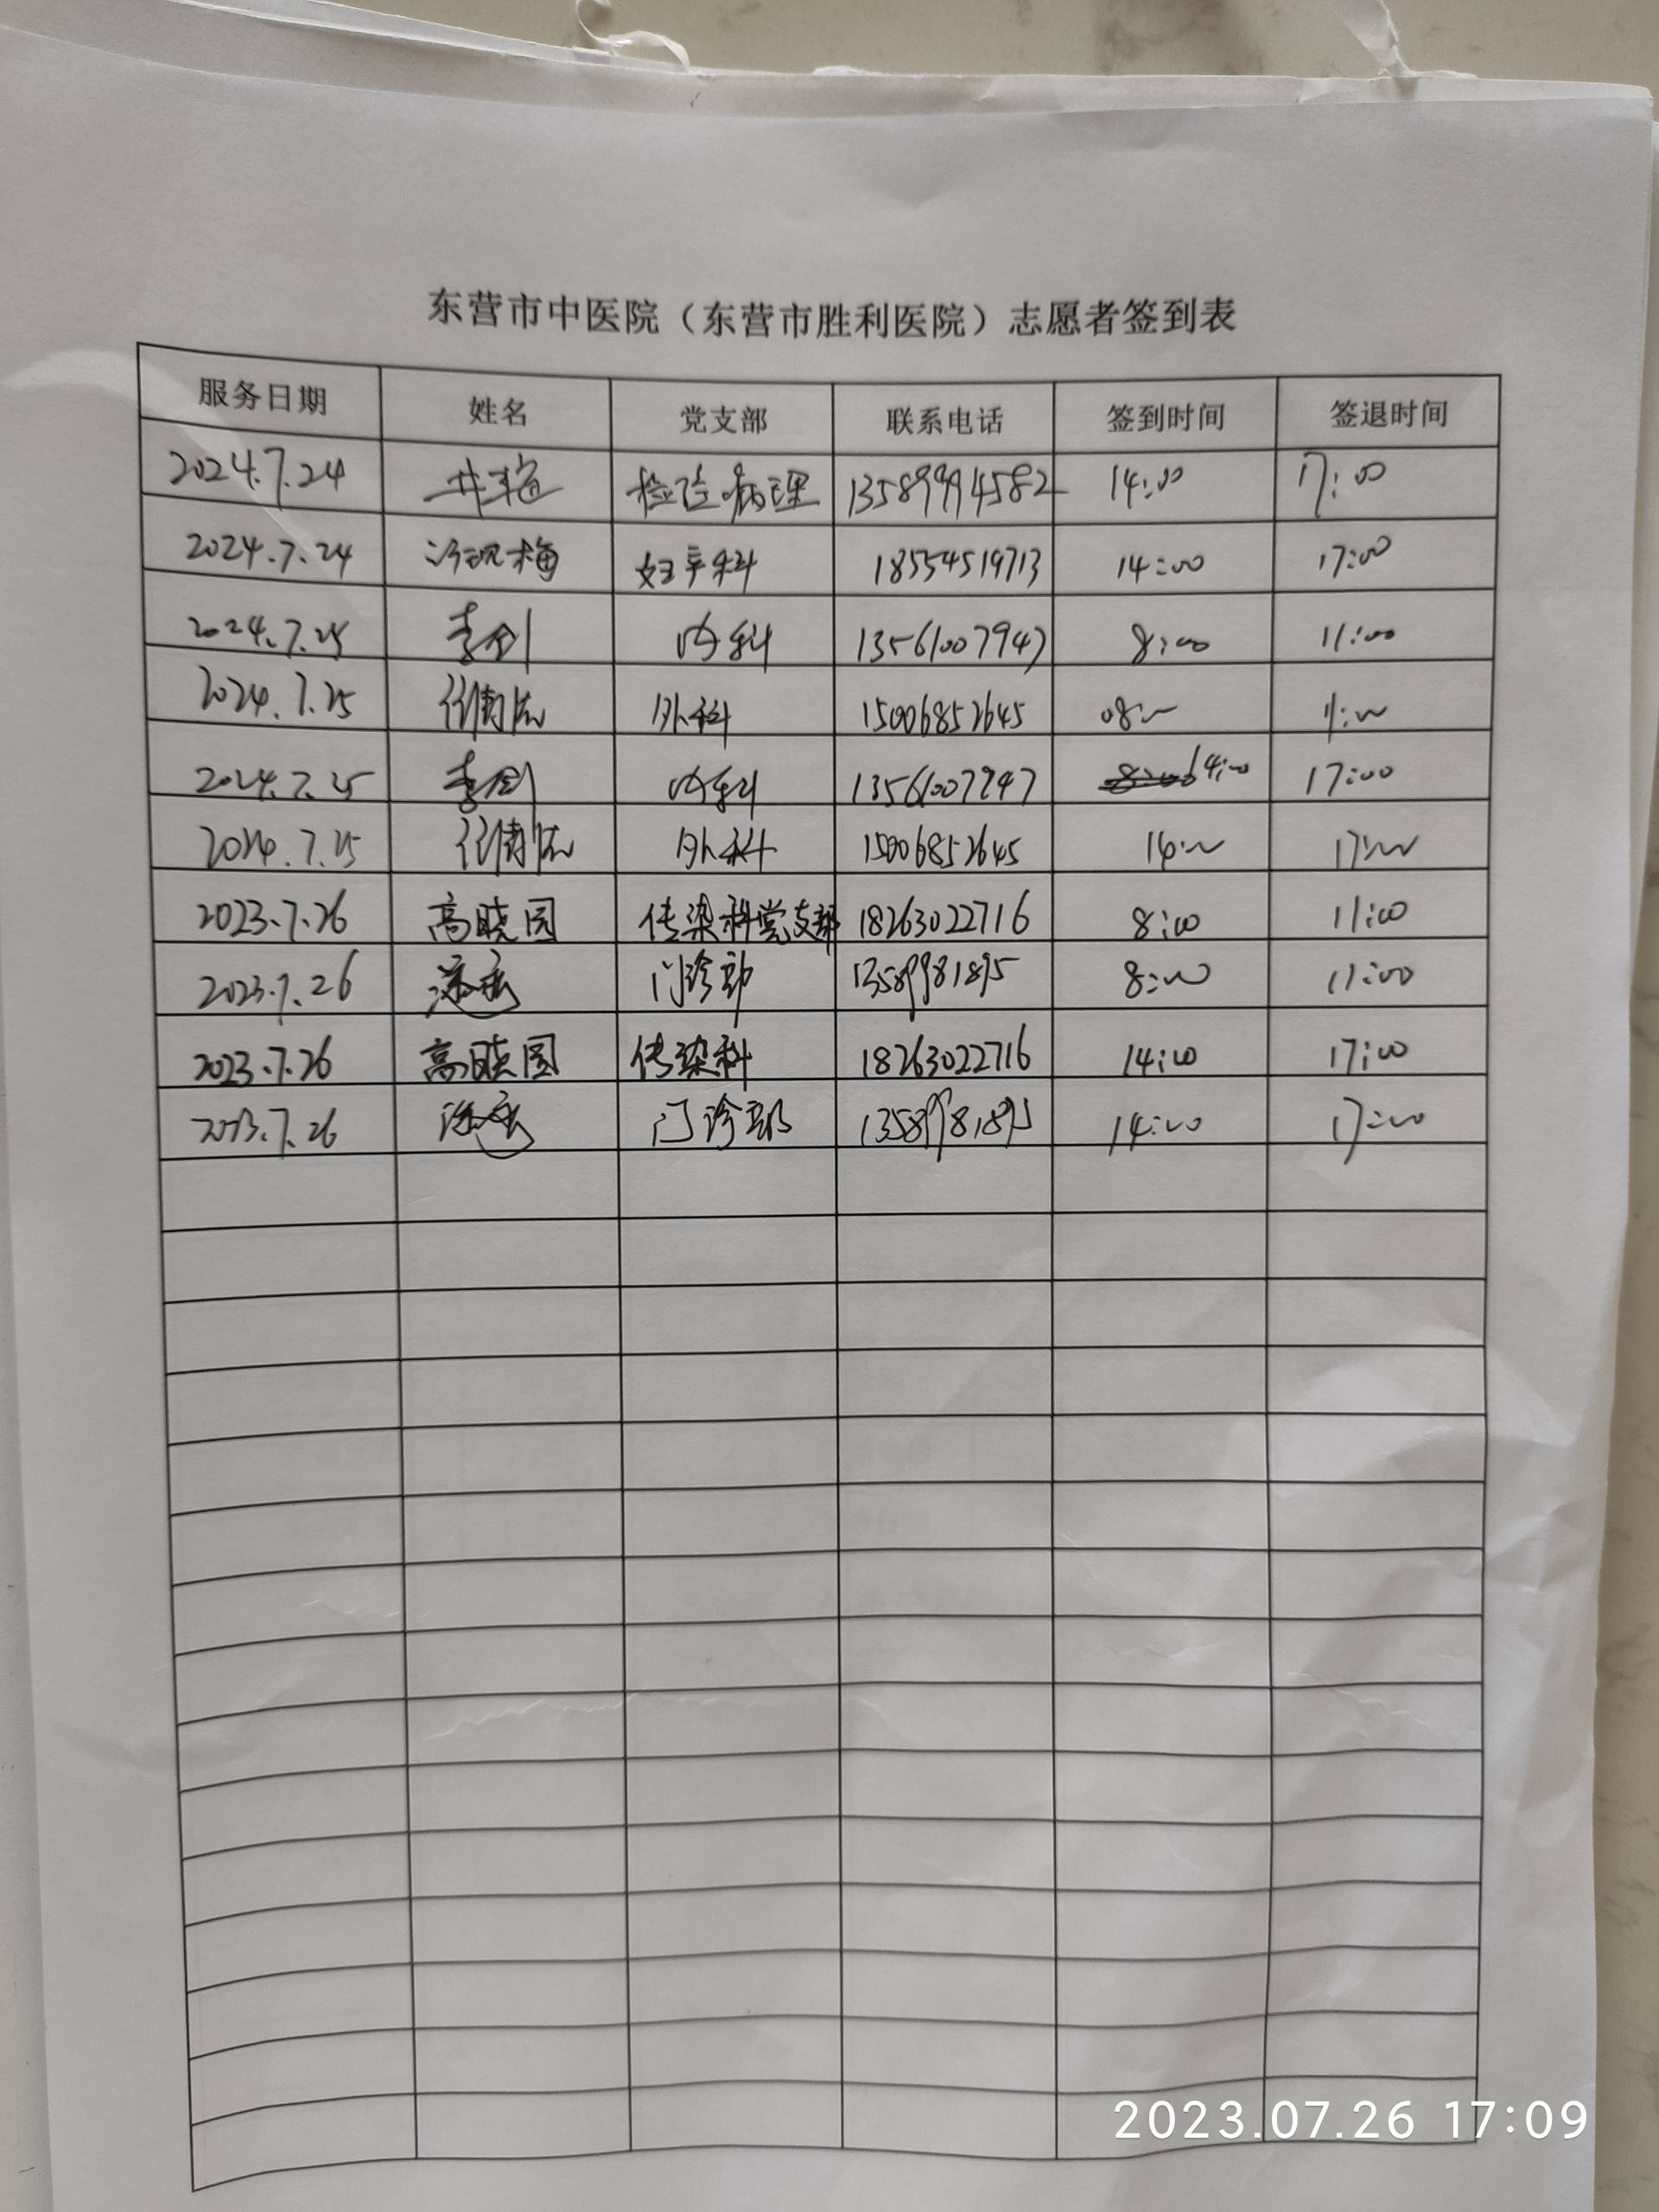 东营市中医院（东营市胜利医院）志愿者签到表
服务日期 姓名 党支部 联系电话 签到时间 签退时间
2024.7.24 检验病理 13589994582 14:00 17:00
2024.7.24 妇产科 18554519713 14:00 17:00
2024.7.25 李剑 内科 13561007947 8:00 11:00
2024.7.25 外科 15006852645 08:00 11:00
2024.7.25 李剑 内科 13561007947 14:00 17:00
2024.7.25 外科 15006852645 14:00 17:00
2023.7.26 高晓园 传染科党支部 18263022716 8:00 11:00
2023.7.26 门诊部 13589981895 8:00 11:00
2023.7.26 高晓园 传染科 18263022716 14:00 17:00
2023.7.26 门诊部 13589981895 14:00 17:00
2023.07.26 17:09